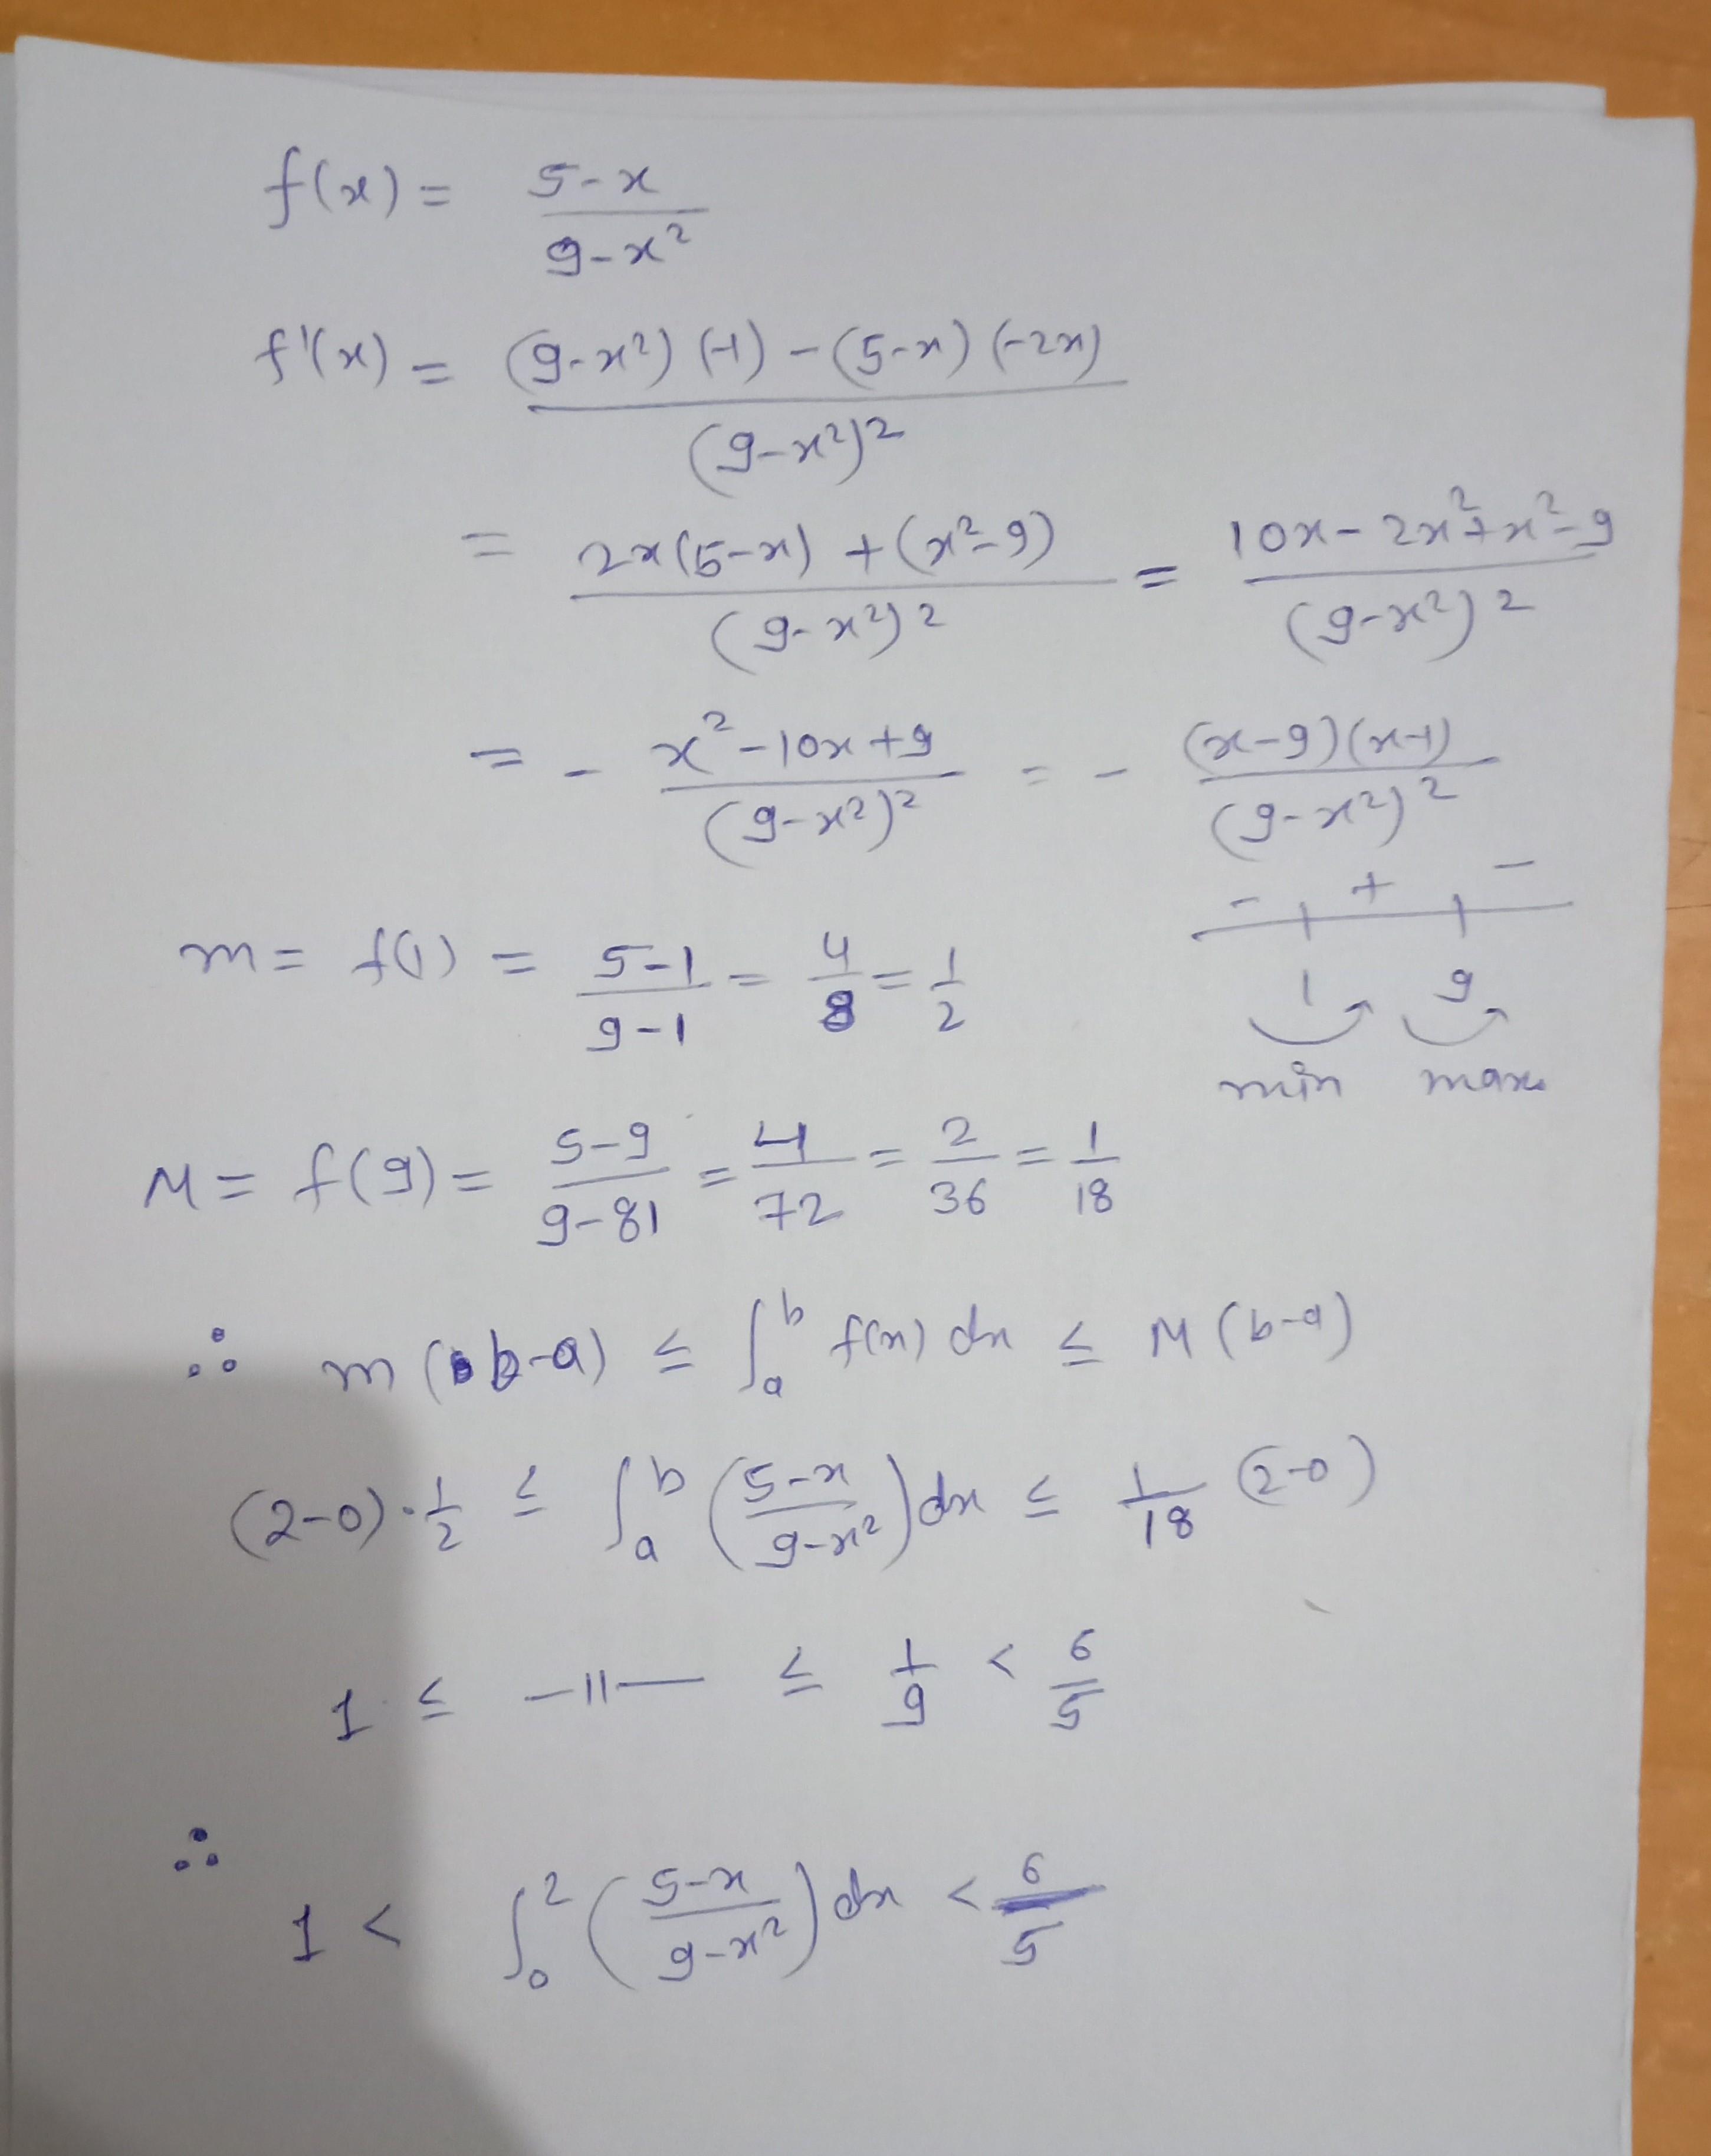 f(x) = (5-x)/(9-x²)
f'(x) = ((9-x²)(-1) - (5-x)(-2x))/(9-x²)²
= (2x(5-x) + (x²-9))/(9-x²)² = (10x - 2x² + x² - 9)/(9-x²)²
= - (x² - 10x + 9)/(9-x²)² = - ((x-9)(x-1))/(9-x²)²
- + -
1 9
min max
m = f(1) = (5-1)/(9-1) = 4/8 = 1/2
M = f(9) = (5-9)/(9-81) = 4/72 = 2/36 = 1/18
∴ m(b-a) ≤ ∫ₐᵇ f(x) dx ≤ M(b-a)
(2-0)·1/2 ≤ ∫ₐᵇ ((5-x)/(9-x²)) dx ≤ 1/18 (2-0)
1 ≤ —11— ≤ 1/9 < 6/5
∴ 1 < ∫₀² ((5-x)/(9-x²)) dx < 6/5